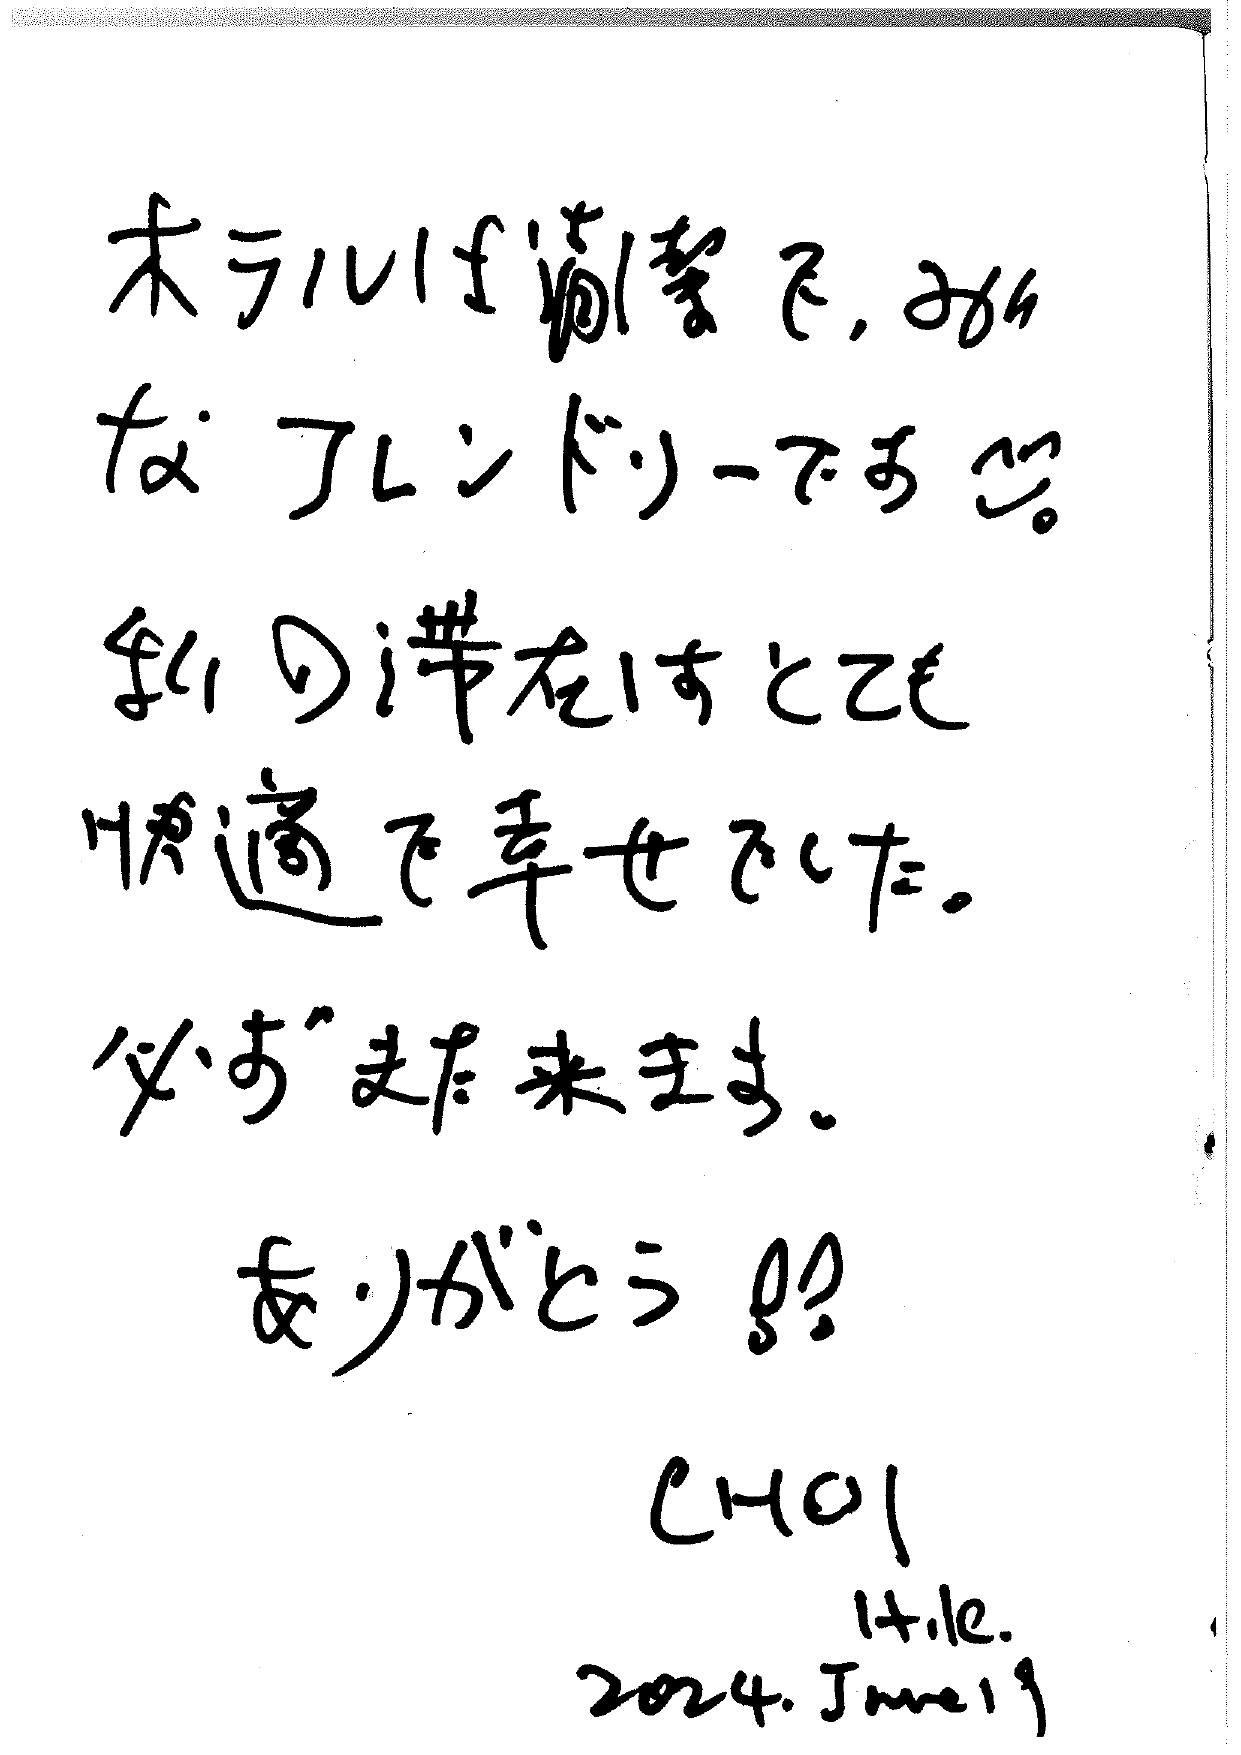 ホテルは清潔で、みん
なフレンドリーです
私の滞在はとても
快適で幸せでした。
必ずまた来ます。
ありがとう!!
CHOI
H.k.
2024. June 19